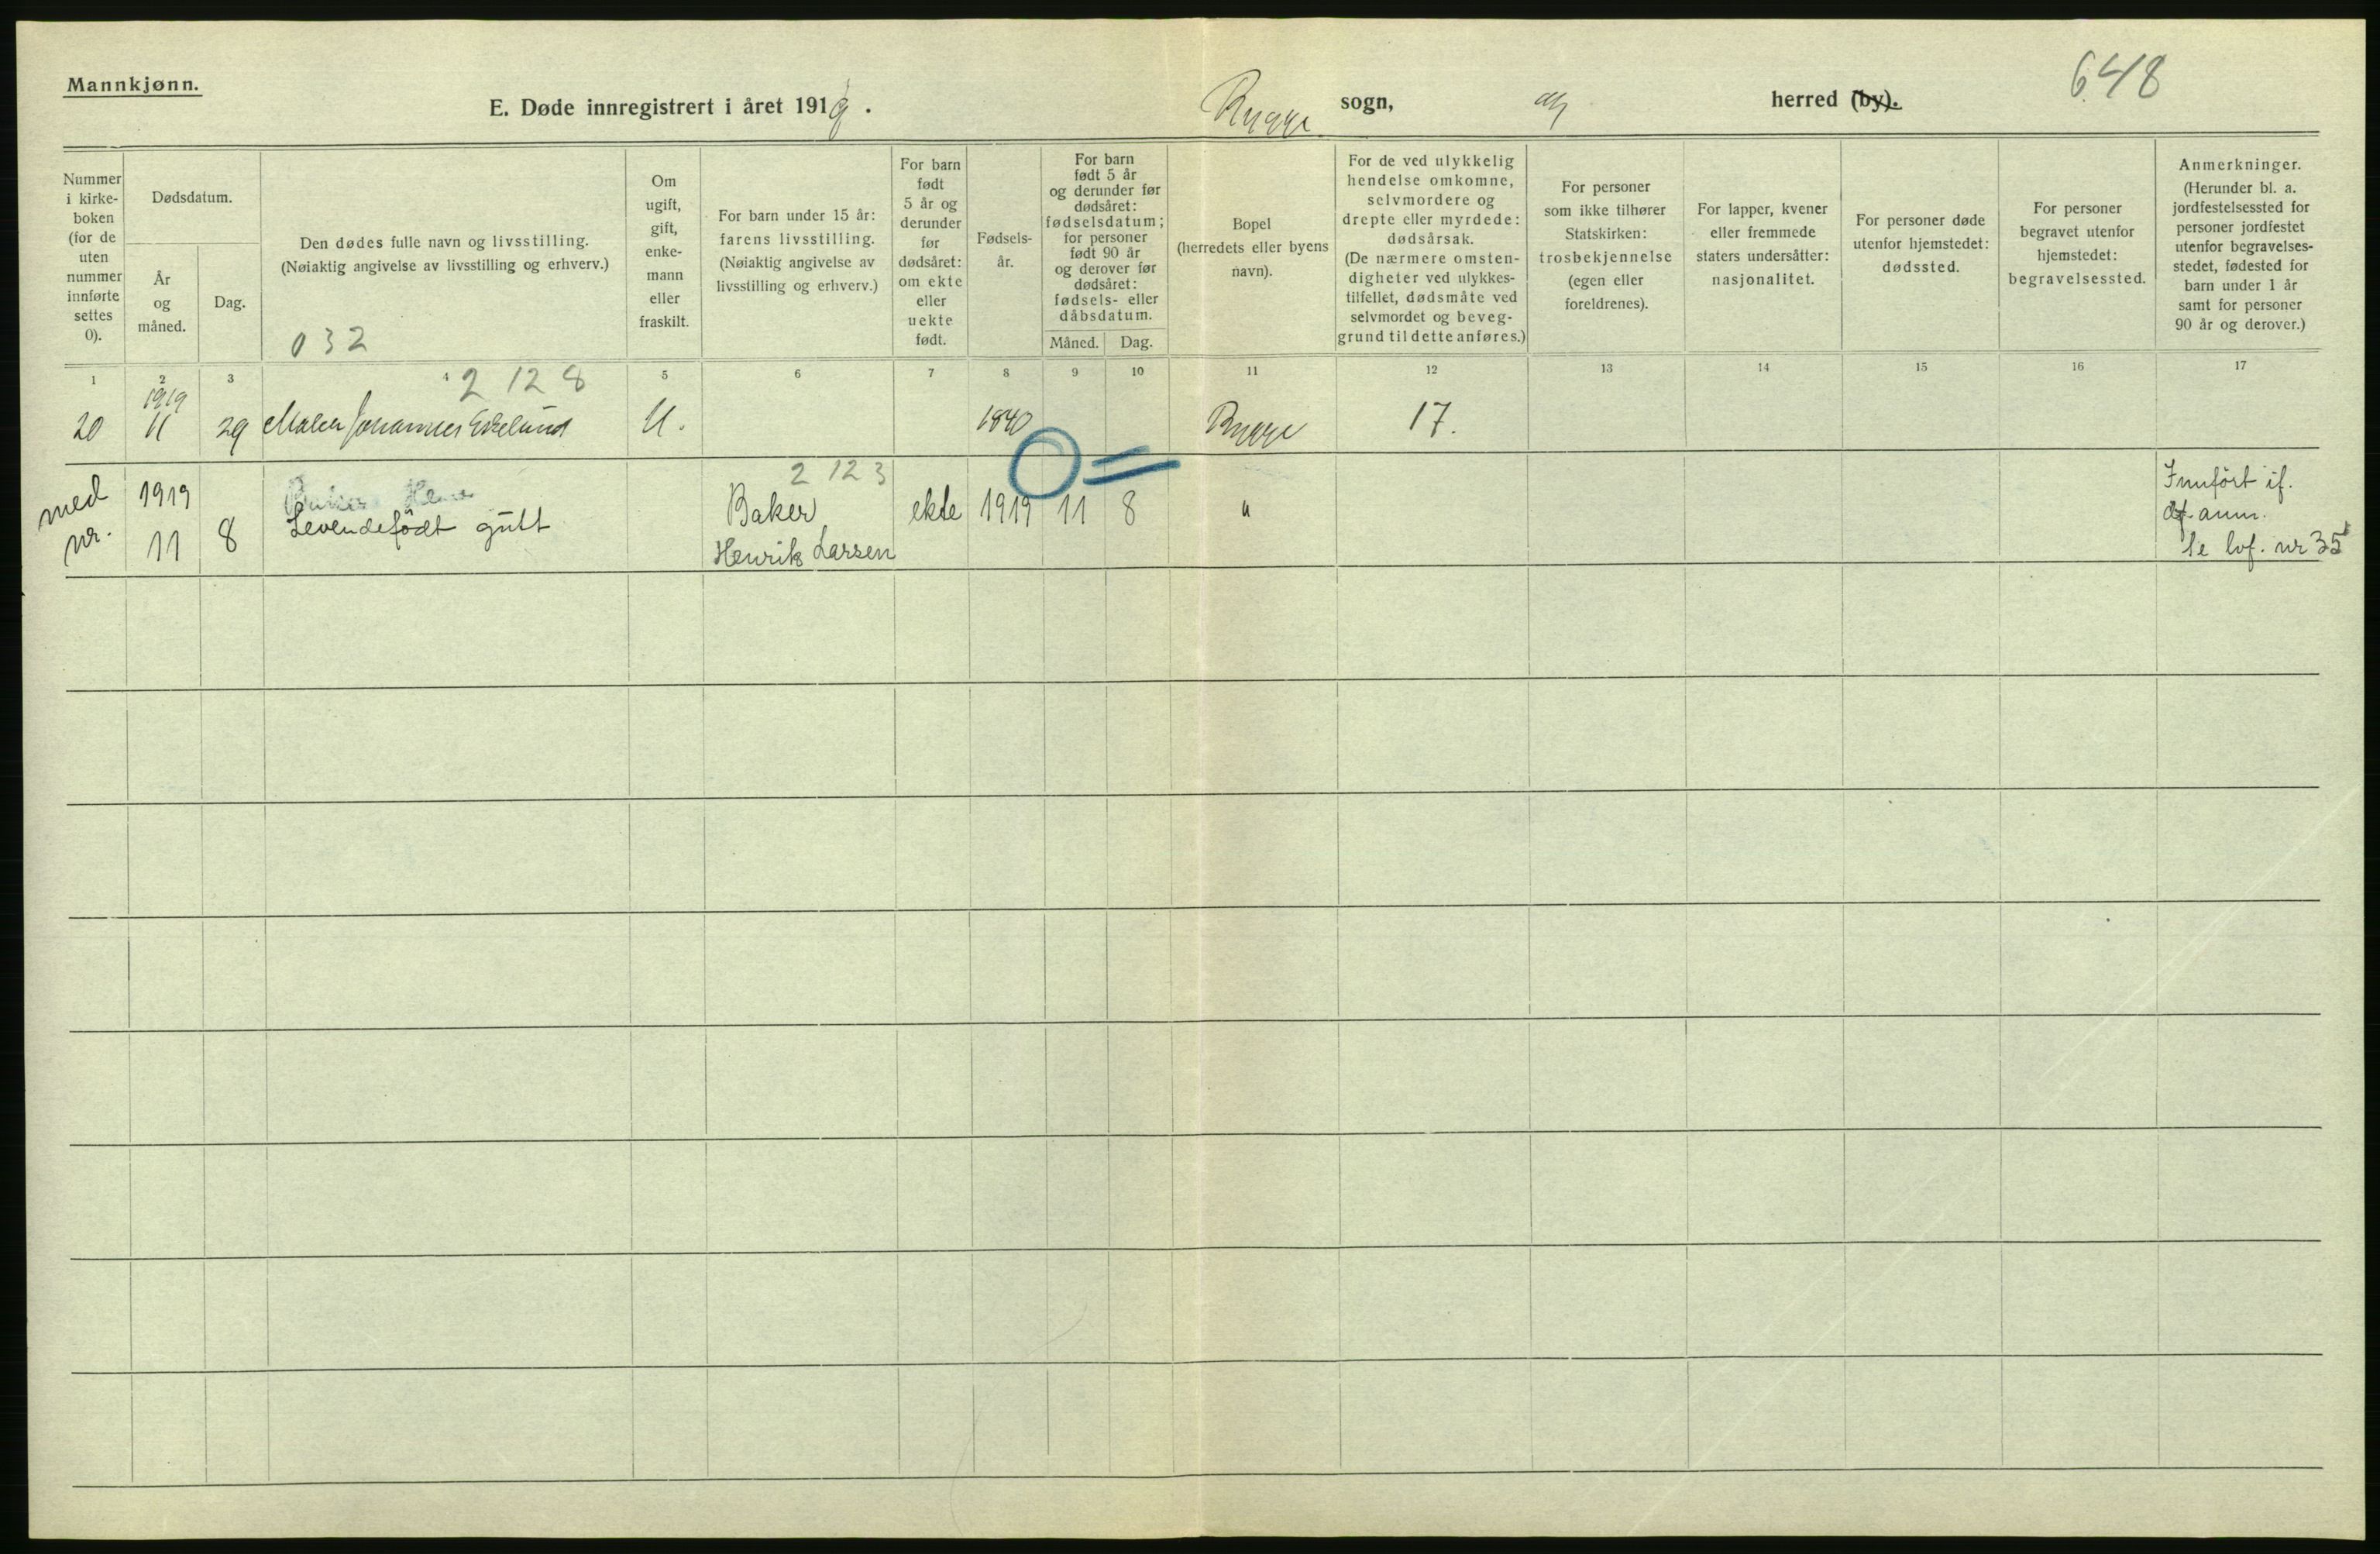 Mannkjønn.
E. Døde innregistrert i året 1919.
Rygge sogn,
herred (by).
648
Nummer
i kirke-
boken
(for de
uten
nummer
innførte
settes
0).
Dødsdatum.
År
og
måned.
Dag.
Den dødes fulle navn og livsstilling.
(Nøiaktig angivelse av livsstilling og erhverv.)
032
Om
ugift,
gift,
enke-
mann
eller
fraskilt.
For barn under 15 år:
farens livsstilling.
(Nøiaktig angivelse av
livsstilling og erhverv.)
For barn
født
5 år og
derunder
før
dødsåret:
om ekte
eller
uekte
født.
Fødsels-
år.
For barn
født 5 år
og derunder før
dødsåret:
fødselsdatum;
for personer
født 90 år
og derover før
dødsåret:
fødsels- eller
dåbsdatum.
Måned.
Dag.
Bopel
(herredets eller byens
navn).
For de ved ulykkelig
hendelse omkomne,
selvmordere og
drepte eller myrdede:
dødsårsak.
(De nærmere omsten-
digheter ved ulykkes-
tilfellet, dødsmåte ved
selvmordet og beveg-
grund til dette anføres.)
For personer
som ikke tilhører
Statskirken:
trosbekjennelse
(egen eller
foreldrenes).
For lapper, kvener
eller fremmede
staters undersåtter:
nasjonalitet.
For personer døde
utenfor hjemstedet:
dødssted.
For personer
begravet utenfor
hjemstedet:
begravelsessted.
Anmerkninger.
(Herunder bl. a.
jordfestelsessted for
personer jordfestet
utenfor begravelses-
stedet, fødested for
barn under 1 år
samt for personer
90 år og derover.)
1 2 3 4 5 6 7 8 9 10 11 12 13 14 15 16 17
2 128
1919
20 11 29 Maler Johannes Ekelund U. 1840 Rygge 17.
2 123
med
nr.
1919
11 8
Levendefødt gutt
Baker
Henrik Larsen
ekte 1919 11 8 "
Innført if.
anm.
Se lvf. nr 35